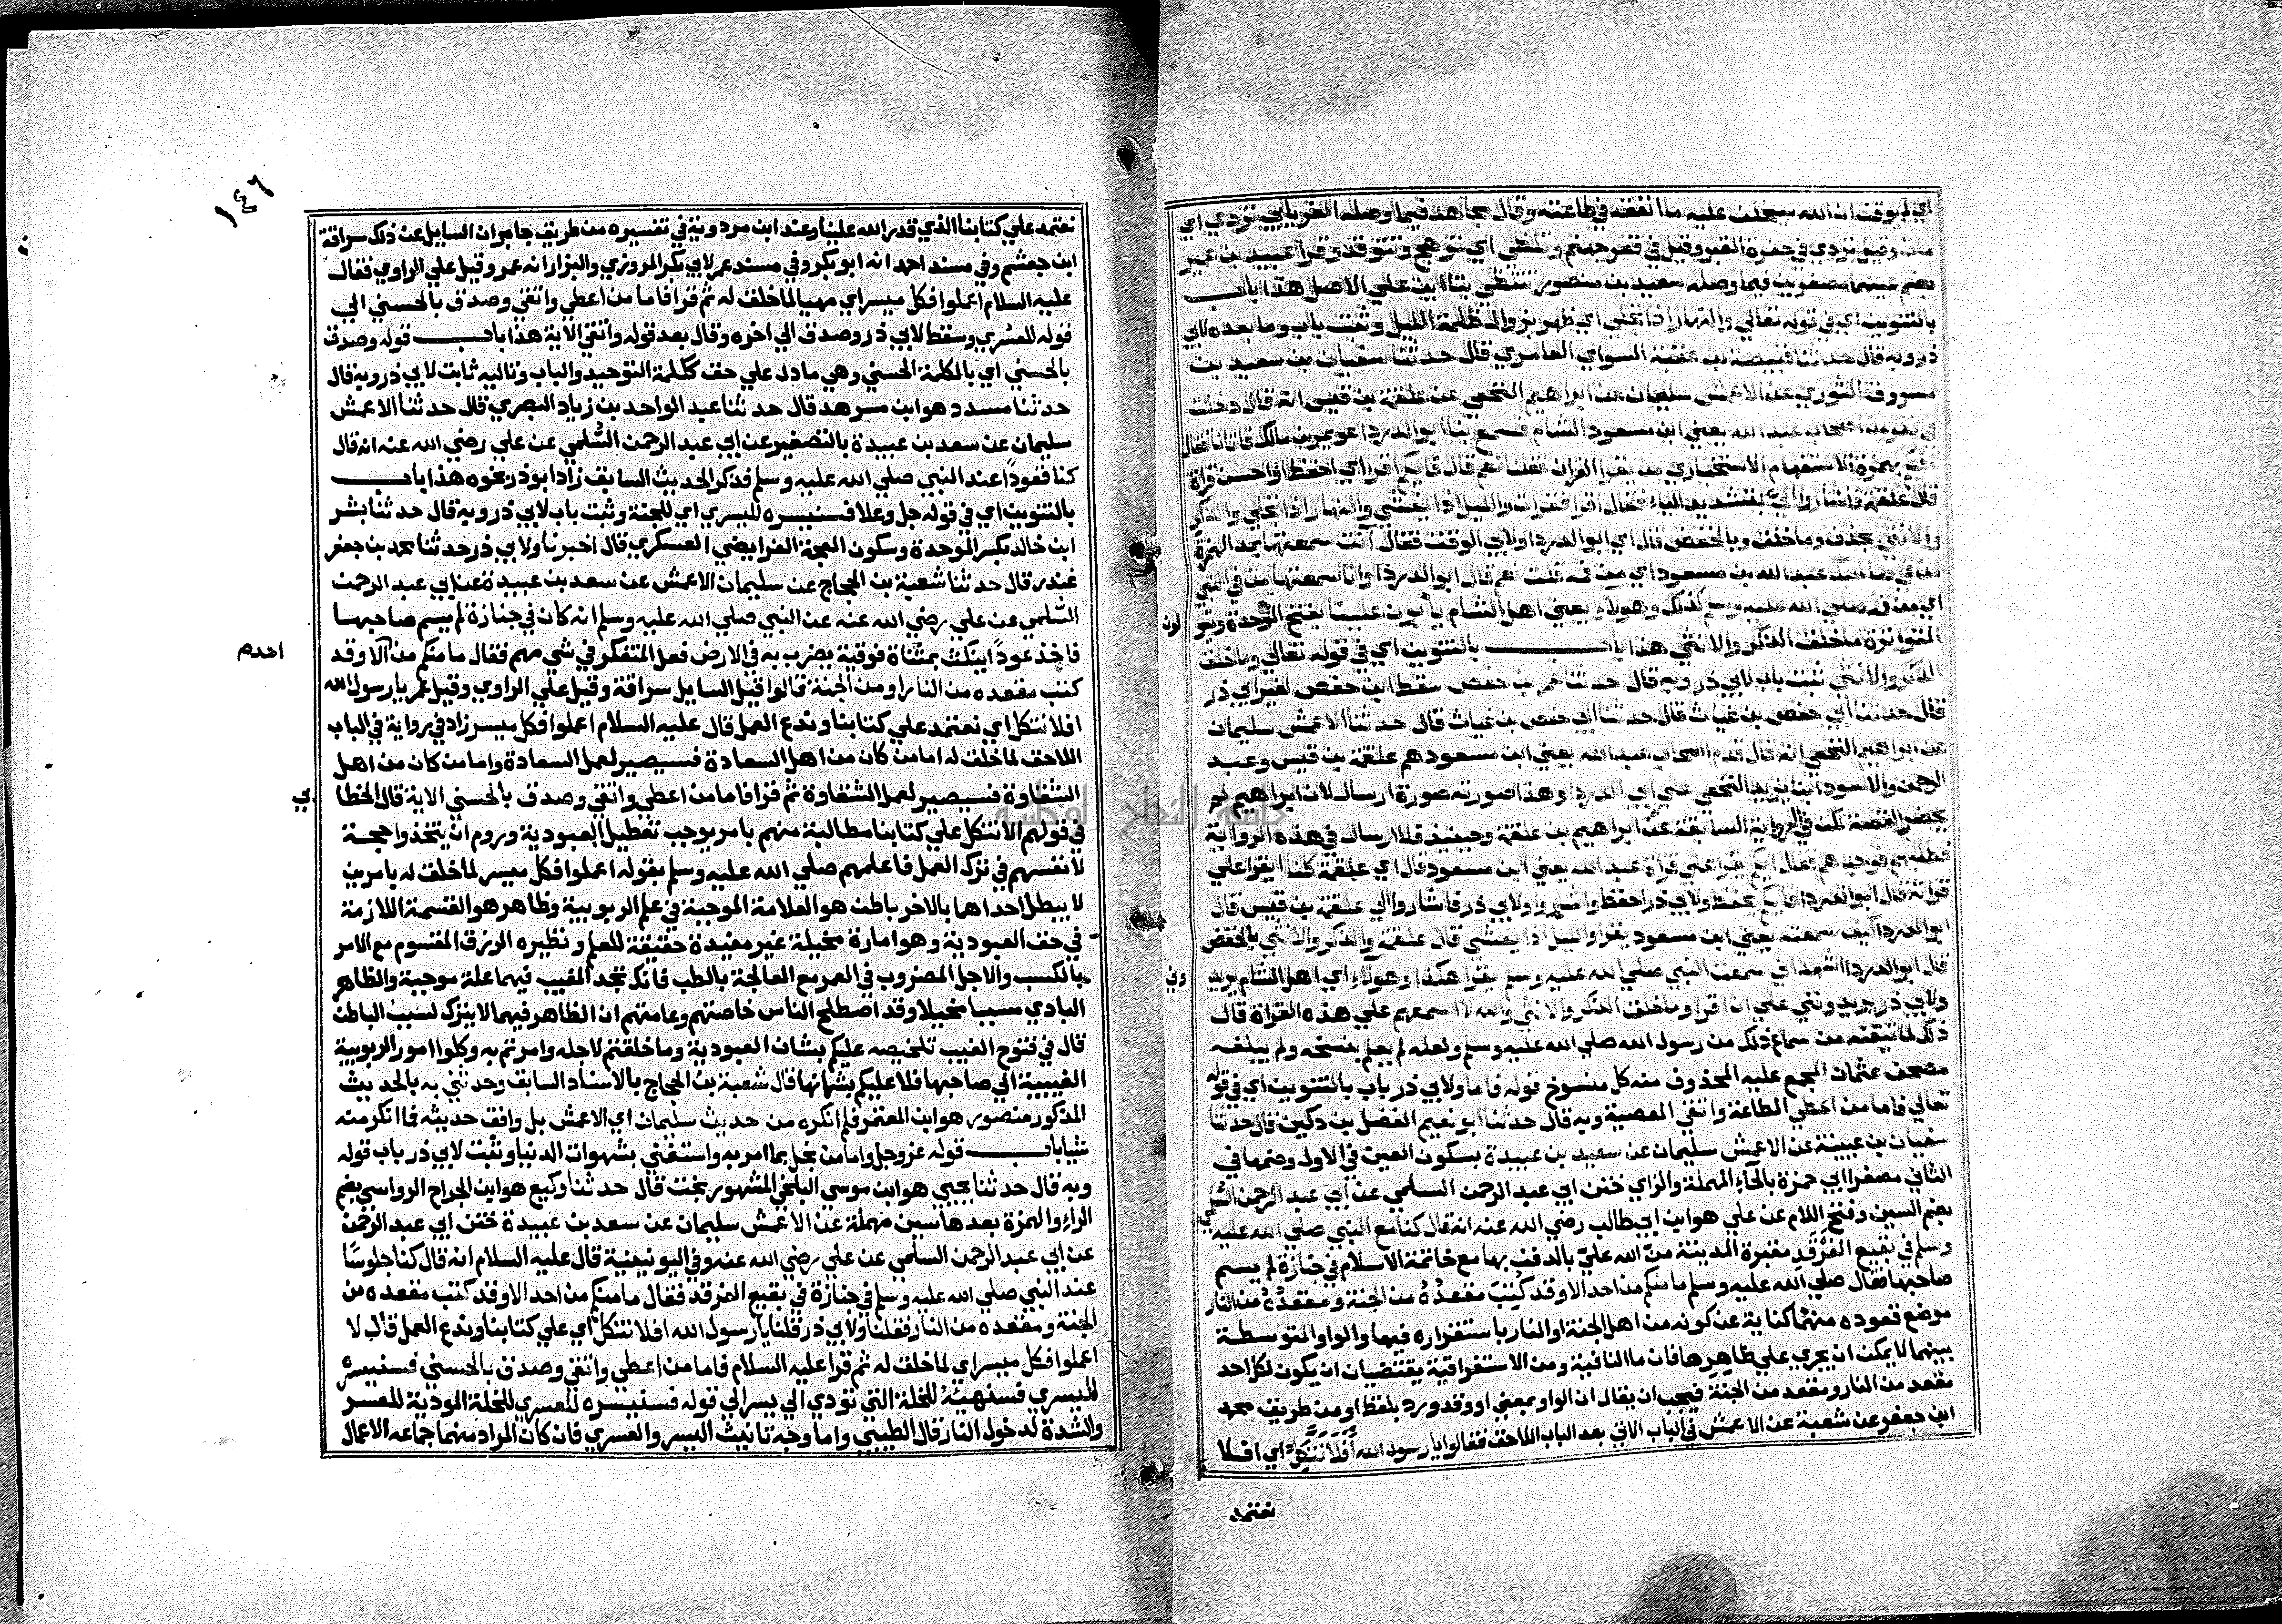 اي لم يوقن ان الله سيخلف عليه ما انفقه في طاعته وقال مجاهد فيما وصله الفريابي تردي اي
مات وقيل تردي في حفرة القبر وقيل في قعر جهنم وتلظي اي توهج وتتوقد وقرا عبيد بن عمير
بضم عينهما مصغرين فيما وصله سعيد بن منصور تتلظي بتاين علي الاصل هذا باب
بالتنوين اي في قوله تعالي والنهار اذا تجلي اي ظهر بزوال ظلمة الليل وثبت باب وما بعده لابي
ذر وبه قال حدثنا قبيصة بن عقبة السواي العامري قال حدثنا سفيان بن سعيد بن
مسروق الثوري عن الاعمش سليمان عن ابراهيم النخعي عن علقمة بن قيس انه قال دخلت
في نفر من اصحاب عبد الله يعني ابن مسعود الشام فسمع بنا ابو الدرداء عويمر بن مالك فاتانا فقال
افيكم بهمزة الاستفهام الاستخباري من يقرا القران فقلنا نعم قال فايكم اقرا اي احفظ او احسن قراة
قال علقمة فاشاروا اليّ بتشديد الياء فقال اقرا فقرات والليل اذا يغشي والنهار اذا تجلي والذكر
والانثي بحذف وما خلق وبالخفض قال اي ابو الدرداء ولابي الوقت فقال آنت سمعتها بمد الهمزة
من في صاحبك عبد الله بن مسعود اي من فمه قلت نعم قال ابو الدرداء وانا سمعتها من في النبي
اي من فمه صلي الله عليه وسلم كذلك وهولاء يعني اهل الشام يابون علينا بفتح الموحدة ويقرون
المتواترة ما خلق الذكر والانثي هذا باب بالتنوين اي في قوله تعالي وما خلق
الذكر والانثي ثبت باب لابي ذر وبه قال حدثنا عمر بن حفص سقط ابن حفص لغير ابي ذر
قال حدثنا ابي حفص بن غياث قال حدثنا الاعمش سليمان
عن ابراهيم النخعي انه قال قدم اصحاب عبد الله يعني ابن مسعود هم علقمة بن قيس وعبد
الرحمن والاسود ابنا يزيد النخعي علي ابي الدرداء وهذا صورته صورة ارسال لان ابراهيم لم
يحضر القصة لكن في الرواية السابقة عن ابراهيم عن علقمة وحينيذ فلا ارسال في هذه الرواية
فطلبهم فوجدهم فقال ايكم يقرا علي قراة عبد الله يعني ابن مسعود قال اي علقمة كلنا يقرا علي
قراته قال ابو الدرداء فايكم يحفظ ولابي ذر احفظ واشاروا ولابي ذر فاشاروا الي علقمة بن قيس قال
ابو الدرداء كيف سمعته يعني ابن مسعود يقرا والليل اذا يغشي قال علقمة والذكر والانثي بالخفض
قال ابو الدرداء اشهد اني سمعت النبي صلي الله عليه وسلم يقرا هكذا وهولاء اي اهل الشام يريدوني
ولابي ذر يريدونني علي ان اقرا وما خلق الذكر والانثي والله لا اسمعهم علي هذه القراة قال
ذلك لما تيقنه من سماع ذلك من رسول الله صلي الله عليه وسلم ولعله لم يعلم بنسخه ولم يبلغه
مصحف عثمان المجمع عليه المحذوف منه كل منسوخ قوله فاما ولابي ذر باب بالتنوين اي في قوله
تعالي فاما من اعطي الطاعة واتقي المعصية وبه قال حدثنا ابو نعيم الفضل بن دكين قال حدثنا
سفيان بن عيينة عن الاعمش سليمان عن سعيد بن عبيدة بسكون العين في الاول وضمها في
الثاني مصغرا ابي حمزة بالحآء المهملة والزاي ختن ابي عبد الرحمن السلمي عن ابي عبد الرحمن السلمي
بضم السين وفتح اللام عن علي هو ابن ابي طالب رضي الله عنه انه قال كنا مع النبي صلي الله عليه
وسلم في بقيع الغَرْقَدِ مقبرة المدينة منّ الله عليّ بالدفن بها مع خاتمة الاسلام في جنازة لم يسم
صاحبها فقال صلي الله عليه وسلم ما منكم من احد الا وقد كُتِبَ مقعدُهُ من الجنة ومقعدُهُ من النار
موضع قعوده منهما كناية عن كونه من اهل الجنة او النار باستقراره فيها والواو المتوسطة
بينهما لا يمكن ان يجري علي ظاهرها فان ما النافية ومن الاستغراقية يقتضيان ان يكون لكل احد
مقعد من النار ومقعد من الجنة فيجب ان يقال ان الواو بمعني او وقد ورد بلفظ او من طريق محمد
ابن جعفر عن شعبة عن الاعمش في الباب الاتي بعد الباب اللاحق فقالوا يا رسول الله أَفَلَا نَتَّكِلُ اي افلا
نعتمد
١٤٦
نعتمد علي كتابنا الذي قدر الله علينا وعند ابن مردوية في تفسيره من طريق جابر ان السايل عن ذلك سراقة
ابن جعشم وفي مسند احمد انه ابو بكر وفي مسند عمر لابي بكر المروزي والبزار انه عمر وقيل علي الراوي فقال
عليه السلام اعملوا فكل ميسر اي مهيا لما خلق له ثم قرا فاما من اعطي واتقي وصدق بالحسني الي
قوله للعسري وسقط لابي ذر وصدق الي اخره وقال بعد قوله واتقي الاية هذا باب قوله وصدق
بالحسني اي بالكلمة الحسني وهي ما دل علي حق ككلمة التوحيد والباب وتاليه ثابت لابي ذر وبه قال
حدثنا مسدد هو ابن مسرهد قال حدثنا عبد الواحد بن زياد البصري قال حدثنا الاعمش
سليمان عن سعد بن عبيدة بالتصغير عن ابي عبد الرحمن السُّلمي عن علي رضي الله عنه انه قال
كنا قعودًا عند النبي صلي الله عليه وسلم فذكر الحديث السابق زاد ابو ذر نحوه هذا باب
بالتنوين اي في قوله جل وعلا فسنيسره لليسري اي للجنة وثبت باب لابي ذر وبه قال حدثنا بشر
ابن خالد بكسر الموحدة وسكون المعجمة الفرايضي العسكري قال اخبرنا ولابي ذر حدثنا محمد بن جعفر
غندر قال حدثنا شعبة بن الحجاج عن سليمان الاعمش عن سعد بن عبيدة عن ابي عبد الرحمن
السُّلمي عن علي رضي الله عنه عن النبي صلي الله عليه وسلم انه كان في جنازة لم يسم صاحبها
فاخذ عودًا ينكت بمثناة فوقية يضرب به في الارض فعل المتفكر في شي مهم فقال ما منكم من احد الا وقد
كتب مقعده من النار او من الجنة قالوا قيل السايل سراقة وقيل علي الراوي وقيل عمر يا رسول الله
افلا نتكل اي نعتمد علي كتابنا وندع العمل قال عليه السلام اعملوا فكل ميسر زاد في رواية في الباب
اللاحق لما خلق له اما من كان من اهل السعادة فسيصير لعمل السعادة واما من كان من اهل
الشقاوة فسيصير لعمل الشقاوة ثم قرا فاما من اعطي واتقي وصدق بالحسني الاية قال الخطابي
في قولهم الا نتكل علي كتابنا مطالبة منهم بامر يوجب تعطيل العبودية وروم ان يتخذوا حجة
لانفسهم في ترك العمل فاعلمهم صلي الله عليه وسلم بقوله اعملوا فكل ميسر لما خلق له بامرين
لا يبطل احداهما بالاخر باطن هو العلامة الموجبة في علم الربوبية وظاهر هو القسمة اللازمة
في حق العبودية وهو امارة مخيلة غير مفيدة حقيقة للعلم ونظيره الرزق المقسوم مع الامر
بالكسب والاجل المضروب في العمر مع المعالجة بالطب فانك تجد المغيب فيهما علة موجبة والظاهر
البادي مسببا مخيلا وقد اصطلح الناس خاصتهم وعامتهم ان الظاهر فيهما لا يترك لسبب الباطن
قال في فتوح الغيب تلخيصه عليكم بشان العبودية وما خلقتم لاجله وامرتم به وكلوا امور الربوبية
الغيبية الي صاحبها فلا عليكم بشانها قال شعبة بن الحجاج بالاسناد السابق وحدثني به بالحديث
المذكور منصور هو ابن المعتمر فلم انكره من حديث سليمان اي الاعمش بل وافق حديثه فما انكر منه
شيا باب قوله عز وجل واما من بخل بما امر به واستغني بشهوات الدنيا وثبت لابي ذر باب قوله
وبه قال حدثنا يحيي هو ابن موسي البلخي المشهور بخت قال حدثنا وكيع هو ابن الجراح الرواسي بضم
الراء والهمزة بعدها سين مهملة عن الاعمش سليمان عن سعد بن عبيدة ختن ابي عبد الرحمن
عن ابي عبد الرحمن السلمي عن علي رضي الله عنه وفي اليونينية قال عليه السلام انه قال كنا جلوسًا
عند النبي صلي الله عليه وسلم في جنازة في بقيع الغرقد فقال ما منكم من احد الا وقد كتب مقعده من
الجنة ومقعده من النار فقلنا ولابي ذر قلنا يا رسول الله افلا نتكل اي علي كتابنا وندع العمل قال لا
اعملوا فكل ميسر اي لما خلق له ثم قرا عليه السلام فاما من اعطي واتقي وصدق بالحسني فسنيسره
لليسري فسنهيئه للخلة التي تودي الي يسر الي قوله فسنيسره للعسري للخلة المودية للعسر
والشدة لدخول النار قال الطيبي واما وجه تانيث اليسر والعسري فان كان المراد منهما جماعه الاعمال
جامعة النجاح الوطنية